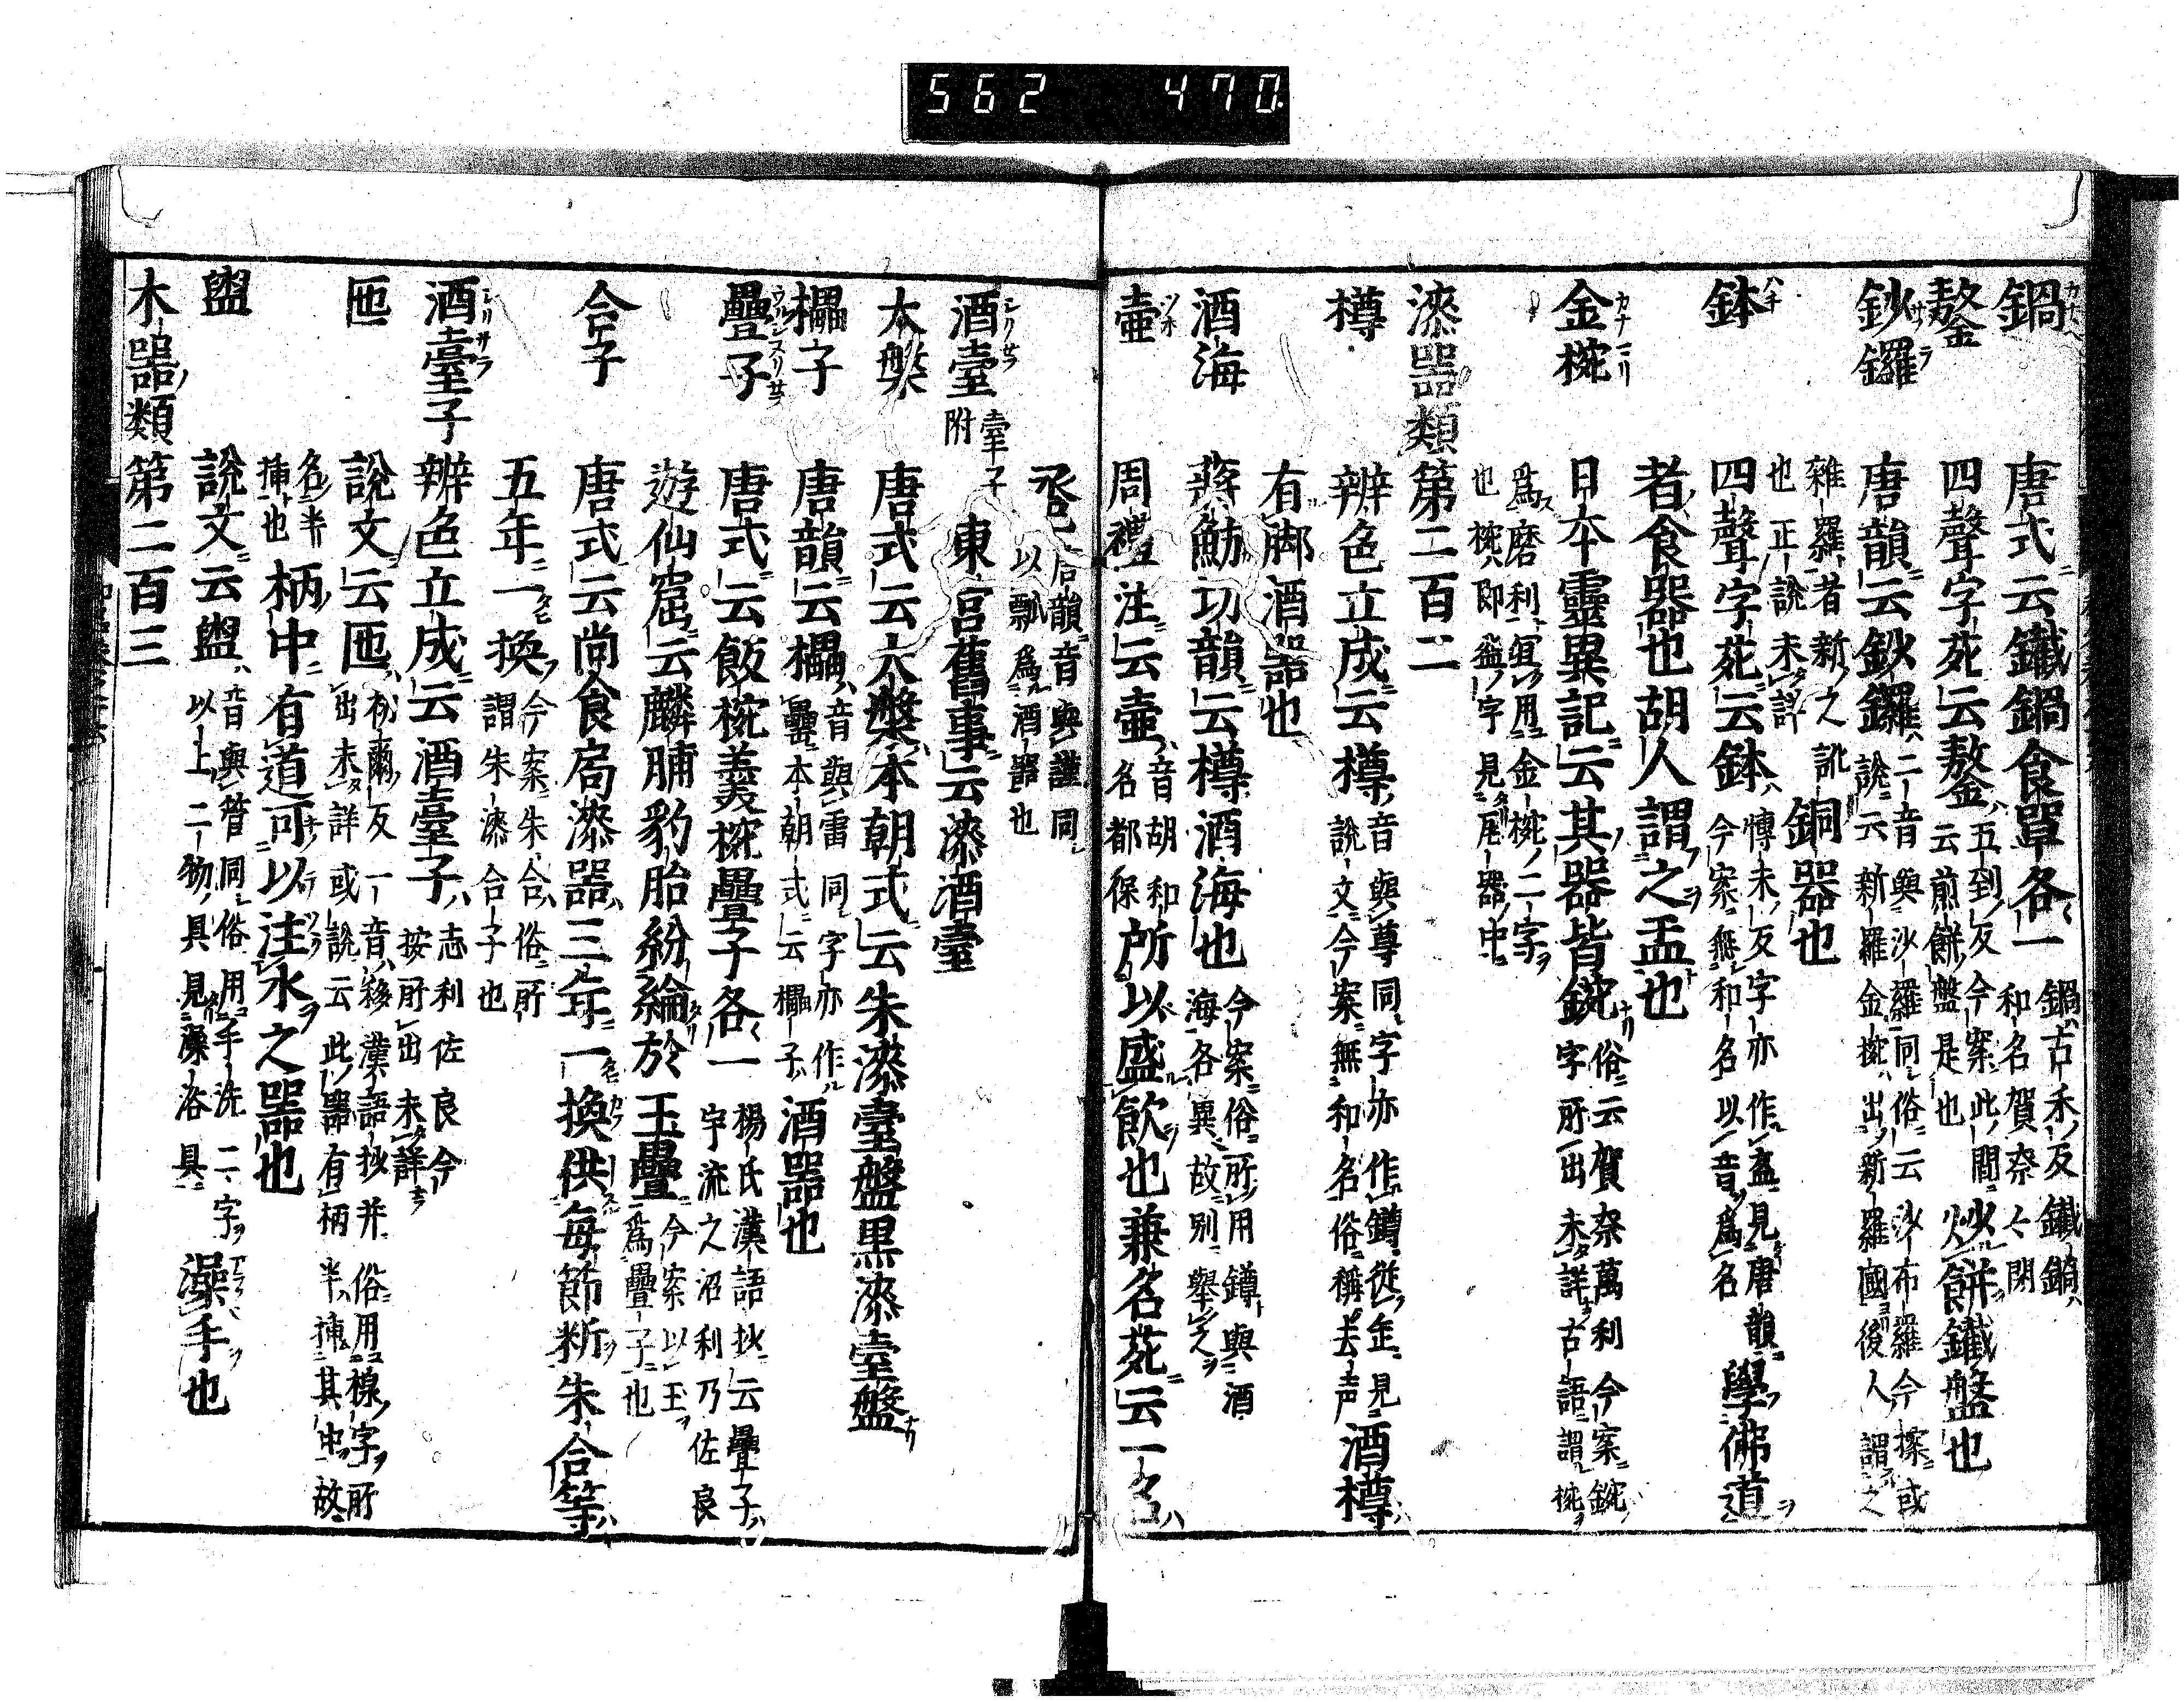 562 470
鍋 唐式云鐵鍋食單各一 鍋古禾反鐵鍋 和名賀奈々閇
鏊 四聲字苑云鏊 五到反今案此間 云煎餅盤是也 炒餅鐵盤也
鈔鑼 唐韻云鈔鑼 二音與沙羅同俗云沙布羅今案或 說云新羅金椀出新羅國後人謂之
雜羅者新之訛 也正說未詳 銅器也
鉢 四聲字苑云鉢 博末反字亦作盋見唐韻 今案無和名以音爲名 學佛道
者食器也胡人謂之盂也
金椀 日本靈異記云其器皆鋺 俗云賀奈萬利今案鋺 字所出未詳古語謂椀
爲磨利宜用金椀二字 也椀即盌字見瓦器中
漆器類第二百二
樽 辨色立成云樽 音與尊同字亦作鐏從缶見 說文今案無和名俗稱去声 酒樽
有脚酒器也
酒海 蔣魴切韻云樽酒海也 今案俗所用鐏與酒 海各異故別舉之
壷 周禮注云壷 音胡和 名都保 所以盛飲也兼名苑云一名
𢀿 唐韻音與謹同 以瓢爲酒器也
酒臺 臺子 附 東宮舊事云漆酒臺
大槃 唐式云大槃本朝式云朱漆臺盤黒漆臺盤
櫑子 唐韻云櫑 音與雷同字亦作 罍本朝式云櫑子 酒器也
疊子 唐式云飯椀羹椀疊子各一 楊氏漢語抄云疊子 宇流之沼利乃佐良
遊仙窟云麟脯豹胎紛綸於玉疊 今案以玉 爲疊子也
合子 唐式云尚食局漆器三年一換供每節料朱合等
五年一換 今案朱合俗所 謂朱漆合子也
酒臺子 辨色立成云酒臺子 志利佐良今 按所出未詳
匜 說文云匜 初爾反一音移漢語抄并俗用楾字所 出未詳或說云此器有柄半揷其中故
名半 揷也 柄中有道可以注水之器也
盥 說文云盥 音與管同俗用手洗二字 以上二物具見澡浴具 澡手也
木器類第二百三